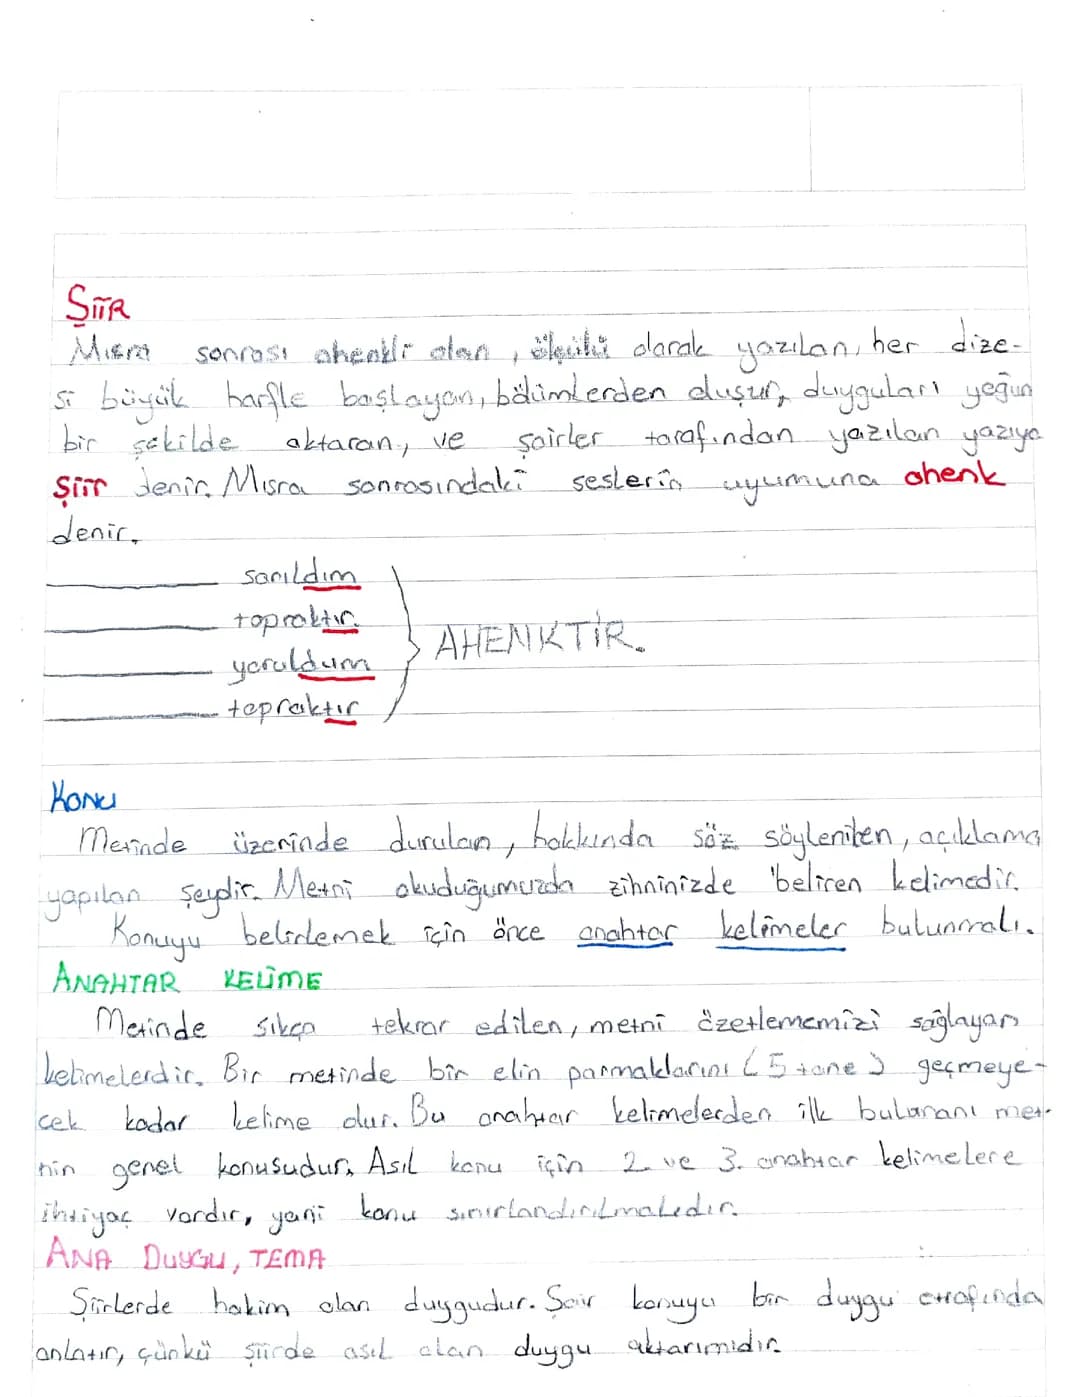 ŞİİR
Mısra sonrası ahenkli olan, ölçülü olarak yazılan, her dize-
si büyük harfle başlayan, bölümlerden oluşur, duyguları yoğun
bir şekilde aktaran, ve şairler tarafından yazılan yazıya
Şiir denir. Mısra sonrasındaki seslerin uyumuna ahenk
denir.
sarıldım
topraktır.
yoruldum
topraktır
AHENKTİR.
KONU
Metinde üzerinde durulan, hakkında söz söylenilen, açıklama
yapılan şeydir. Metni okuduğumuzda zihninizde beliren kelimedir.
Konuyu belirlemek için önce anahtar kelimeler bulunmalı.
ANAHTAR KELİME
Metinde sıkça tekrar edilen, metni özetlememizi sağlayan
kelimelerdir. Bir metinde bir elin parmaklarını (5 tane) geçmeye-
cek kadar kelime olur. Bu anahtar kelimelerden ilk bulunanı met-
nin genel konusudur. Asıl konu için 2. ve 3. anahtar kelimelere
ihtiyaç vardır, yani konu sınırlandırılmalıdır.
ANA DUYGU, TEMA
Şiirlerde hakim olan duygudur. Şair konuyu bir duygu etrafında
anlatır, çünkü şiirde asıl olan duygu aktarımıdır.